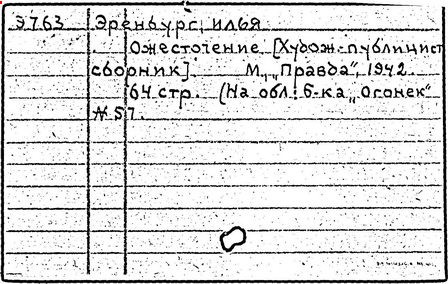 Э763 Эренбург, Илья
Ожесточение. [Худож.-публицист
сборник]. М., "Правда", 1942.
64 стр. (На обл.: Б-ка "Огонек"
№ 57.